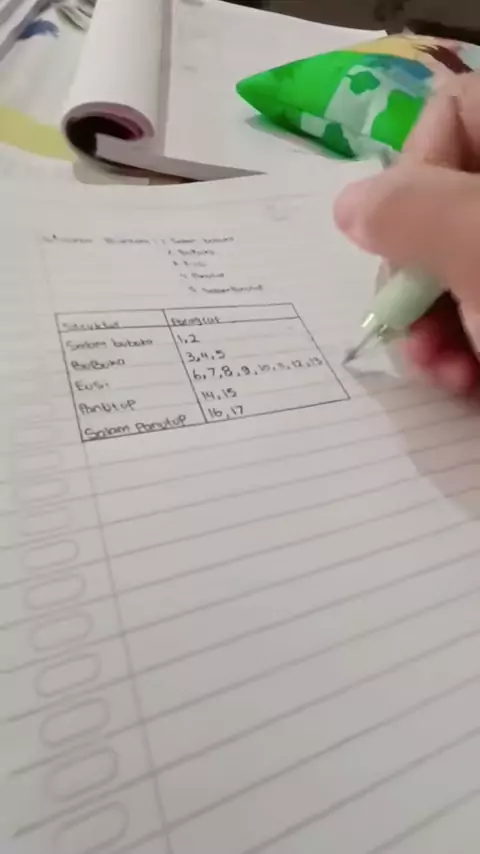 1. Salam bubuka
2. Bubuka
3. Eusi
4. Panutup
5. Salam Panutup
Struktur Paragraf
Salam bubuka 1,2
Bubuka 3,4,5
Eusi 6,7,8,9,10,11,12,13
Panutup 14,15
Salam Panutup 16,17